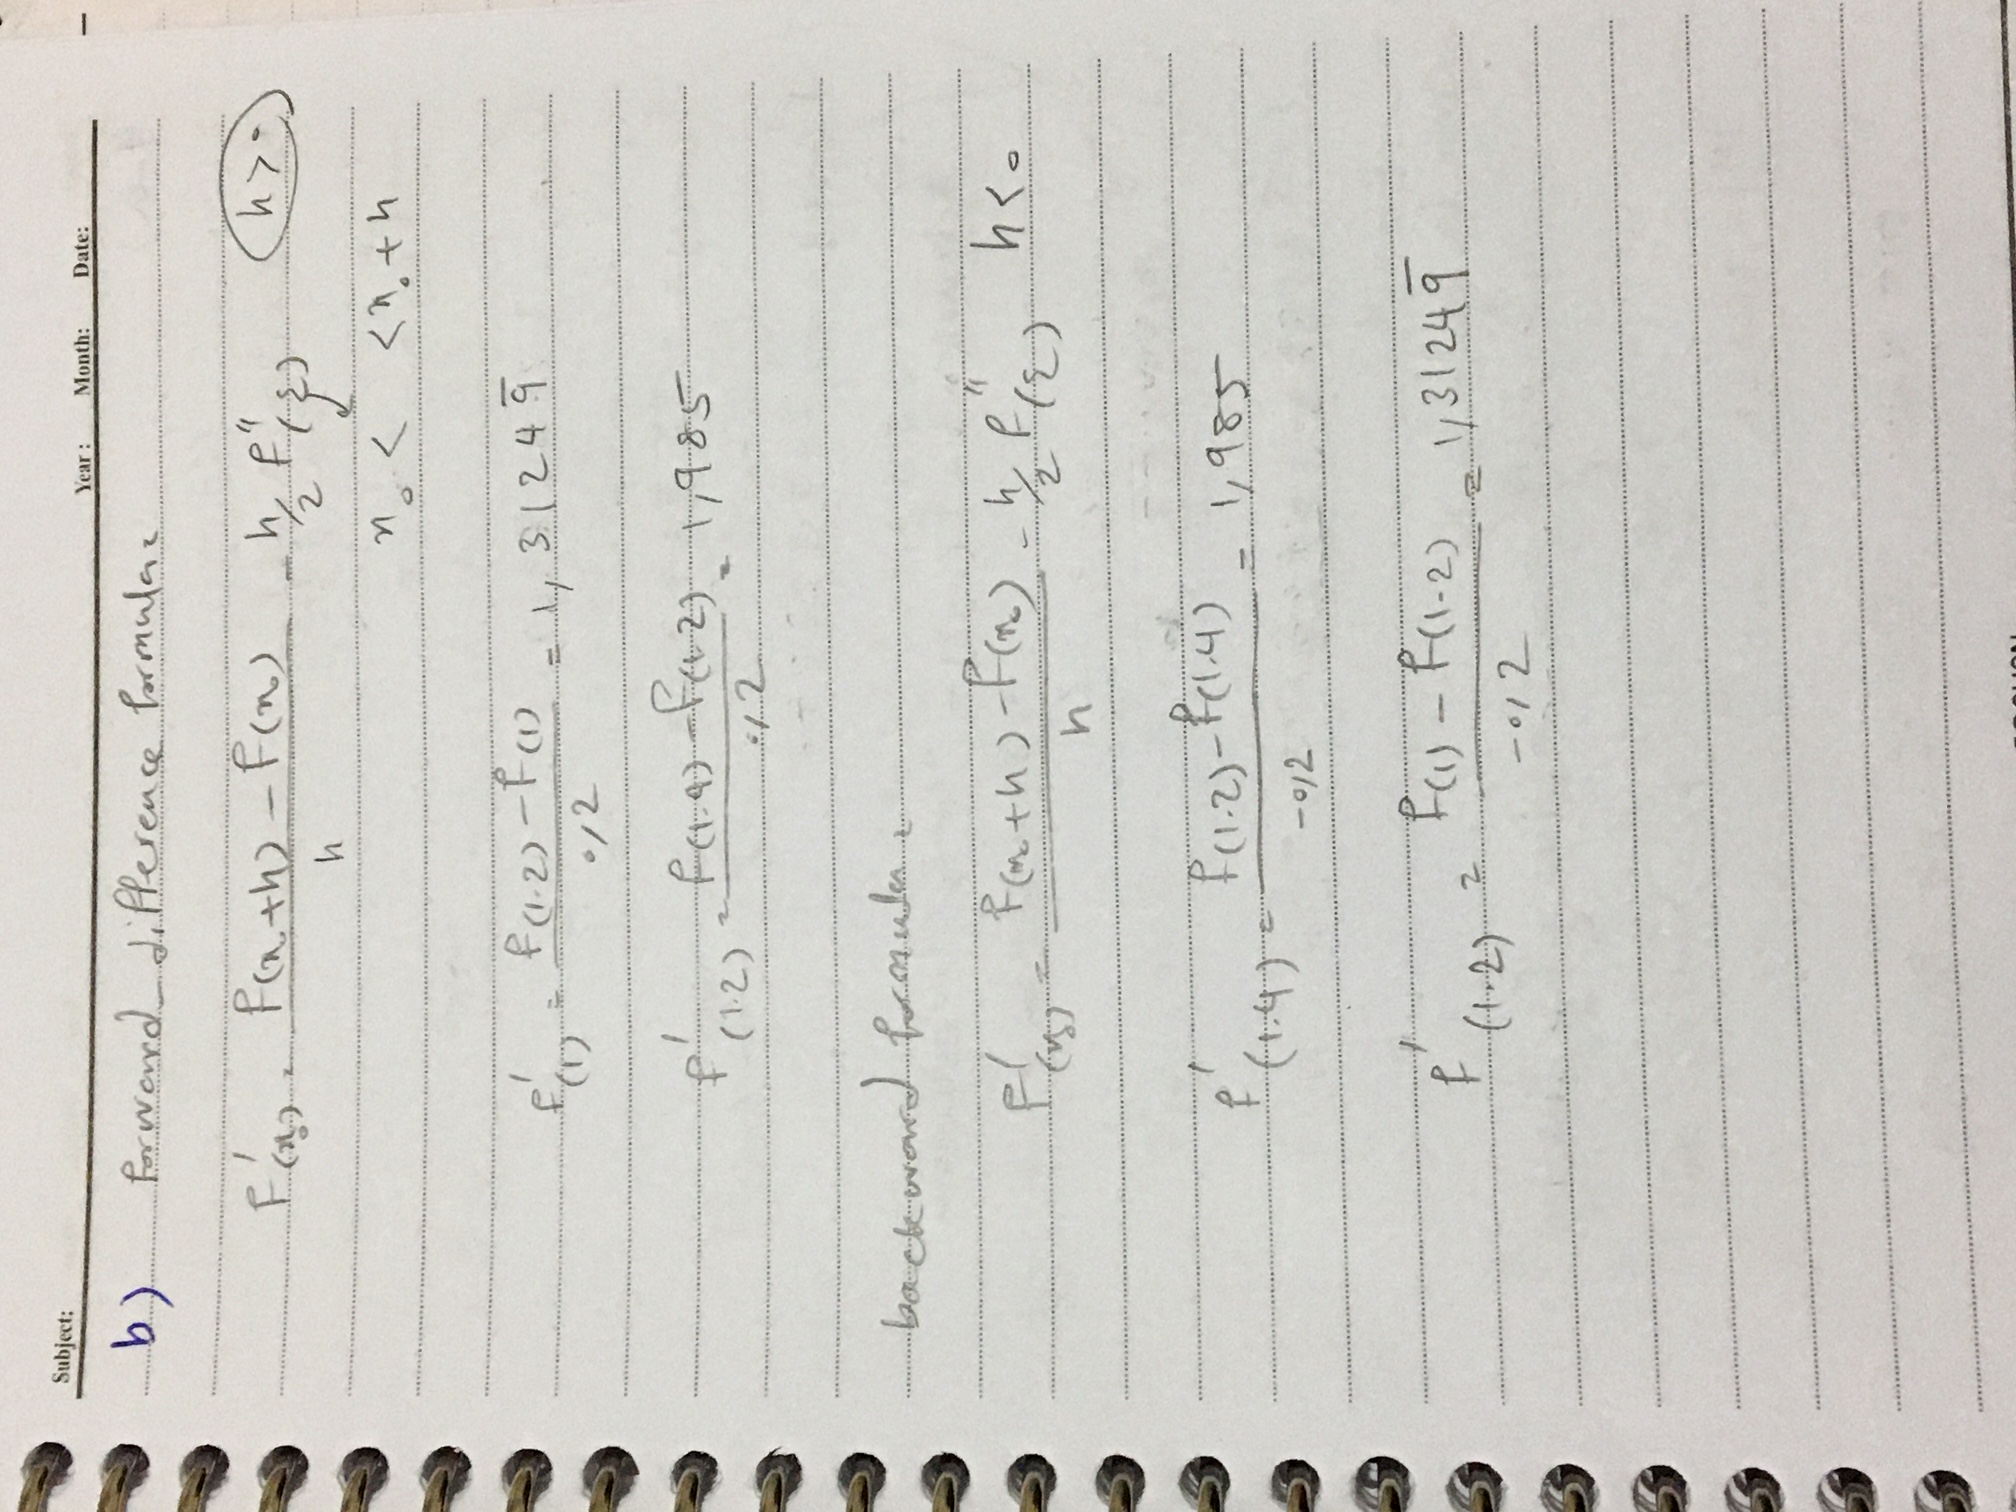 Subject:
Year: Month: Date:
b) forward_difference formula:
f'(x₀) = f(x₀+h) - f(x₀) / h - h/2 f''(ξ) h>0
x₀ < < x₀+h
f'(1) = f(1.2) - f(1) / 0,2 = 1,31249̅
f'(1.2) = f(1.4) - f(1.2) / 0,2 = 1,985
backward formula:
f'(x₀) = f(x₀+h) - f(x₀) / h - h/2 f''(ξ) h<0
f'(1.4) = f(1.2) - f(1.4) / -0,2 = 1,985
f'(1.2) = f(1) - f(1.2) / -0,2 = 1,31249̅